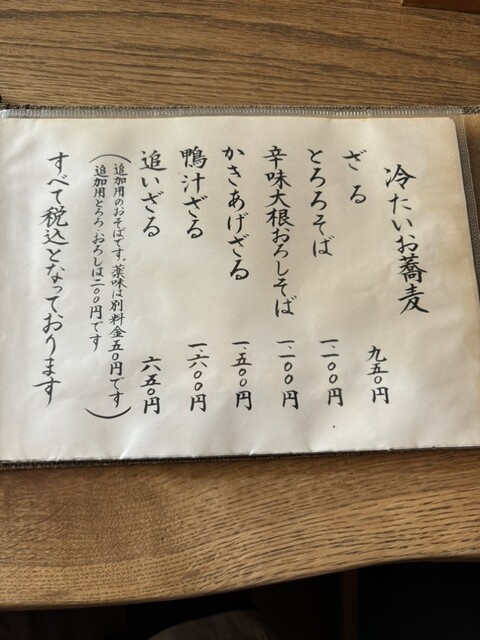 冷たいお蕎麦
ざる 九五〇円
とろろそば 一、一〇〇円
辛味大根おろしそば 一、一〇〇円
かきあげざる 一、五〇〇円
鴨汁ざる 一、六〇〇円
追いざる 六五〇円
(追加用のおそばです。薬味は別料金五〇円です
追加用とろろ・おろしは二〇〇円です)
すべて税込となっております